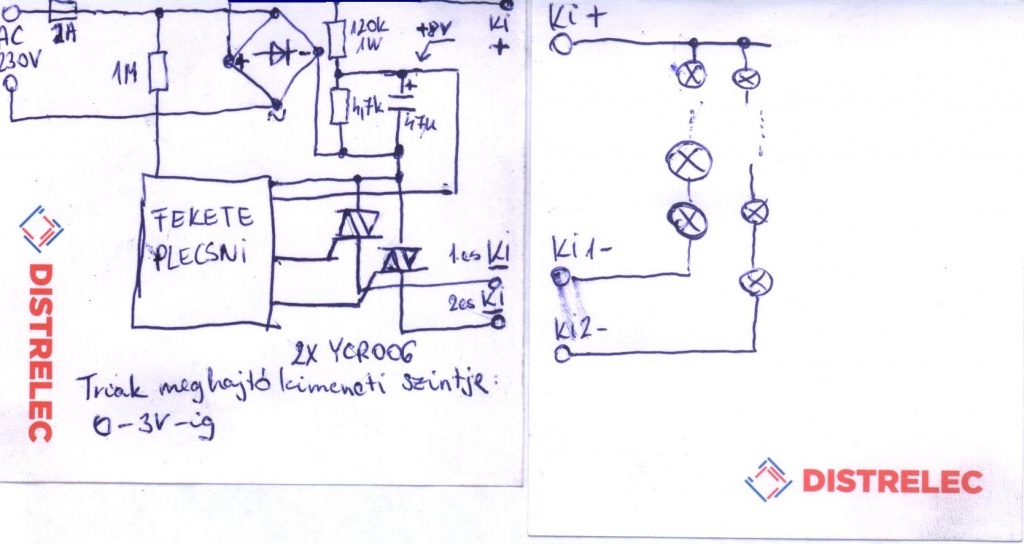 AC
230V
2A
1M
+
~
120k
1W
+8V
+
4,7k
47µ
Ki
+
FEKETE
PLECSNI
1.es Ki
-
2es Ki
-
2X YCR006
Triak meghajtó kimeneti szintje:
0-3V-ig
DISTRELEC
Ki+
Ki1-
Ki2-
DISTRELEC